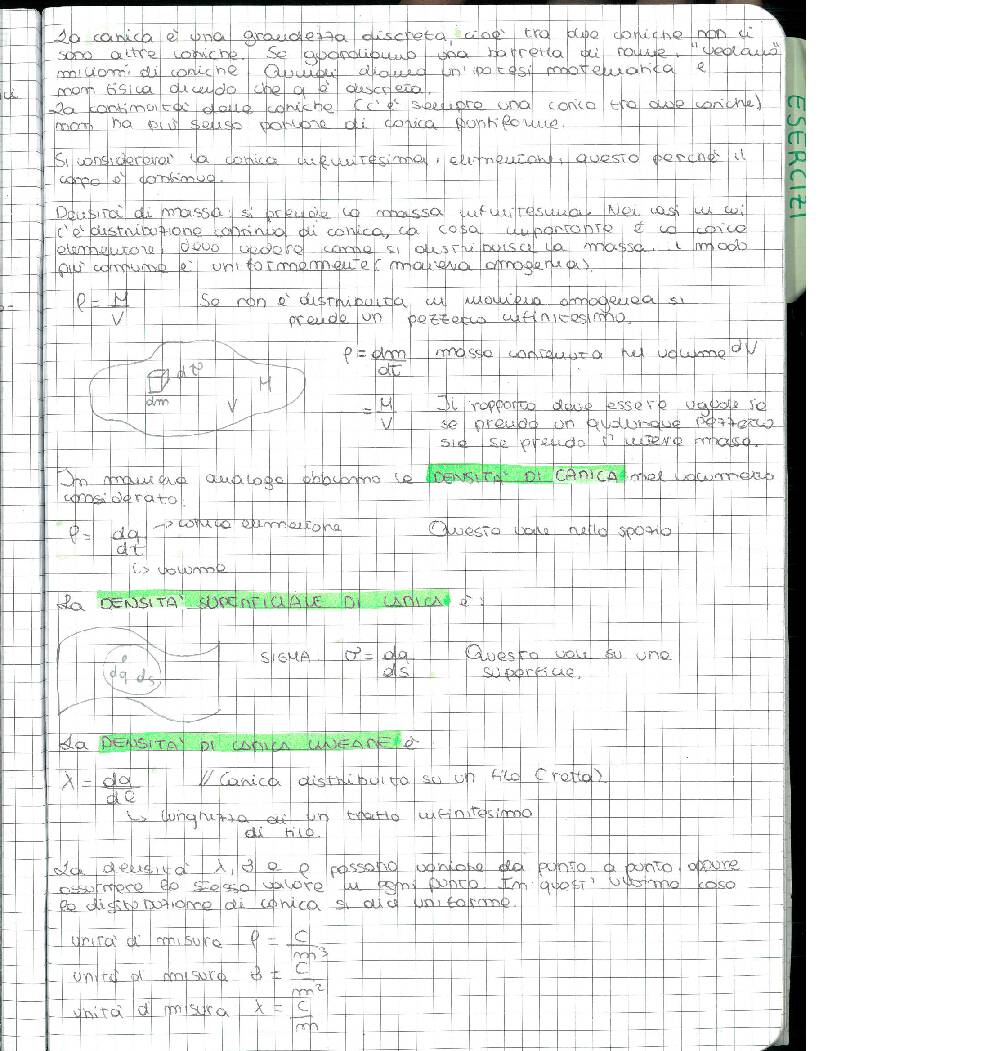 La carica è una grandezza discreta, cioè tra due cariche non ci
sono altre cariche. Se guardiamo una barretta di rame, "vediamo"
milioni di cariche. Quindi diamo un'ipotesi matematica e
non fisica dicendo che q è discreta.
La continuità delle cariche (c'è sempre una carica tra due cariche)
non ha più senso parlare di carica puntiforme.
Si considererà la carica infinitesima, elementare, questo perché il
corpo è continuo.
Densità di massa: si prende la massa infinitesima. Nei casi in cui
c'è distribuzione continua di carica, la cosa importante è la carica
elementare, devo vedere come si distribuisce la massa. Il modo
più comune è uniformemente (maniera omogenea).
ρ = M/V Se non è distribuita in maniera omogenea si
prende un pezzetto infinitesimo.
dτ
dm
V
M
ρ = dm/dτ massa contenuta nel volume dV
= M/V Il rapporto deve essere uguale se
se prendo un qualunque pezzetto
sia se prendo l'intera massa.
In maniera analoga abbiamo la DENSITA' DI CARICA nel volumetto
considerato:
ρ = dq/dτ → carica elementare Questo vale nello spazio
↳ volume
La DENSITA' SUPERFICIALE DI CARICA è:
dq ds
SIGMA σ = dq/ds Questo vale su una
superficie.
La DENSITA' DI CARICA LINEARE è
λ = dq/dl // Carica distribuita su un filo (retta).
↳ lunghezza di un tratto infinitesimo
di filo.
La densità λ, σ e ρ possono variare da punto a punto, oppure
assumere lo stesso valore in ogni punto. In quest'ultimo caso
la distribuzione di carica si dice uniforme.
unità di misura ρ = C/m³
unità di misura σ = C/m²
unità di misura λ = C/m
ESERCIZI